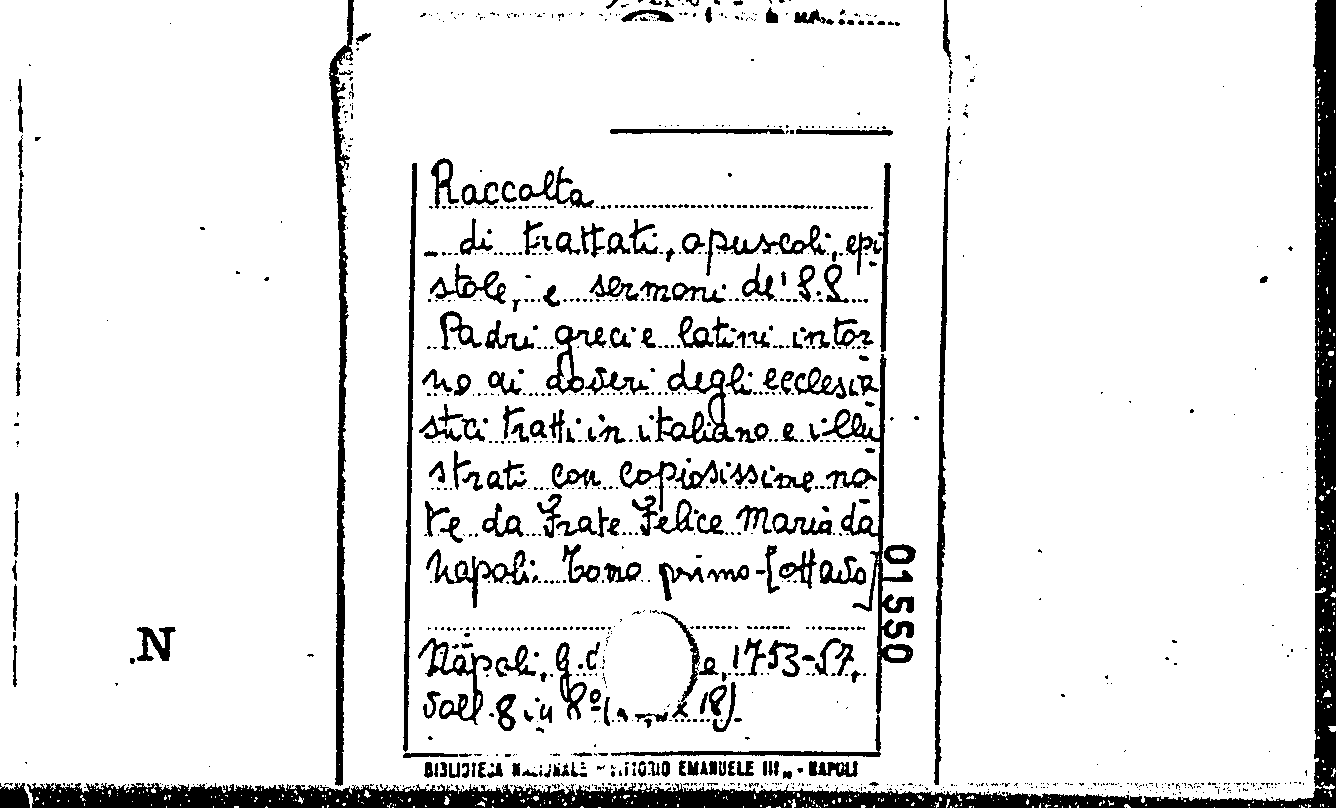 Raccolta
di trattati, opuscoli, epi
stole, e sermoni de' S.S.
Padri greci e latini intor
no ai doveri degli ecclesia
stici tratti in italiano e illu
strati con copiosissime no
te da Frate Felice Maria da
Napoli. Tomo primo-[ottavo]
01550
N
Napoli, G.d e, 1753-57,
Voll. 8 in 8º ( 18).
BIBLIOTECA NAZIONALE "VITTORIO EMANUELE III" - NAPOLI